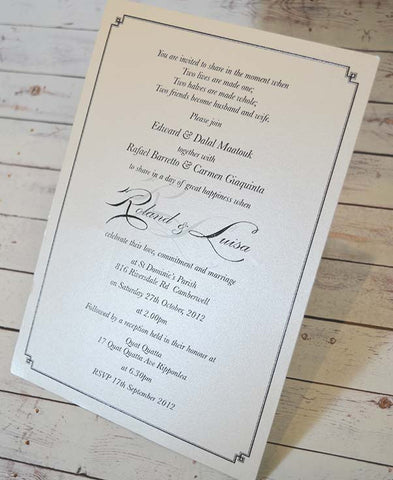 You are invited to share in the moment when
Two lives are made one;
Two halves are made whole;
Two friends become husband and wife.
Please join
Edward & Dalal Maatouk
together with
Rafael Barretto & Carmen Giaquinta
to share in a day of great happiness when
Roland & Luisa
celebrate their love, commitment and marriage
at St Dominic's Parish
816 Riversdale Rd Camberwell
on Saturday 27th October, 2012
at 2.00pm
Followed by a reception held in their honour at
Quat Quatta
17 Quat Quatta Ave Ripponlea
at 6.30pm
RSVP 17th September 2012